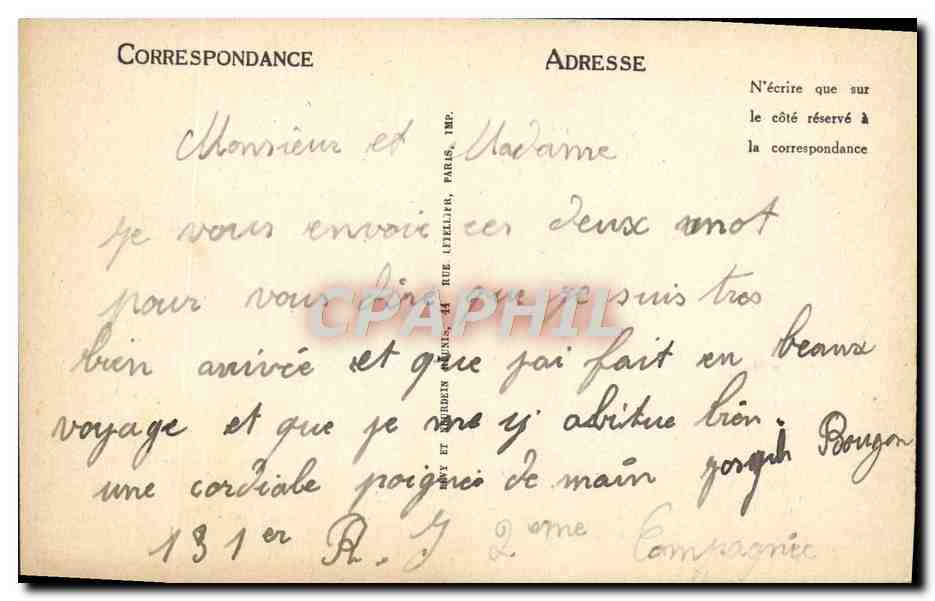 CORRESPONDANCE
ADRESSE
N'écrire que sur
le côté réservé à
la correspondance
Monsieur et Madame
je vous envoie ces deux mot
pour vous dire que je suis tres
bien arivée et que jai fait en beaux
voyage et que je me y abitue bien.
une cordiale poignée de main Joseph Bougon
131er R. I 2eme Compagnie
LEVY ET NEURDEIN REUNIS, 44 RUE LETELLIER, PARIS, IMP.
CPAPHIL